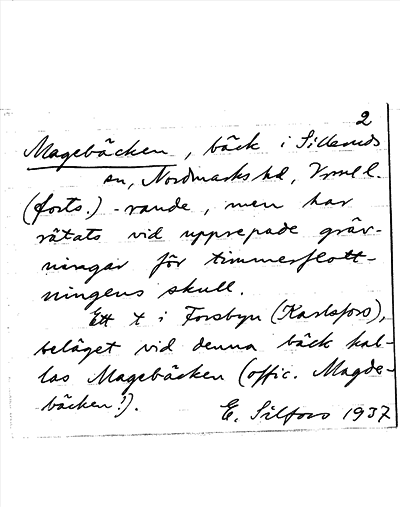 2
Magebäcken, bäck i Silleruds
sn, Nordmarks hd, Vrml.
(forts.) -rande, men har
rätats vid upprepade gräv-
ningar för timmerflott-
ningens skull.
Ett t i Forsbyn (Karlsfors),
beläget vid denna bäck kal-
las Magebäcken (offic. Magde-
bäcken!).
E. Silfors 1937